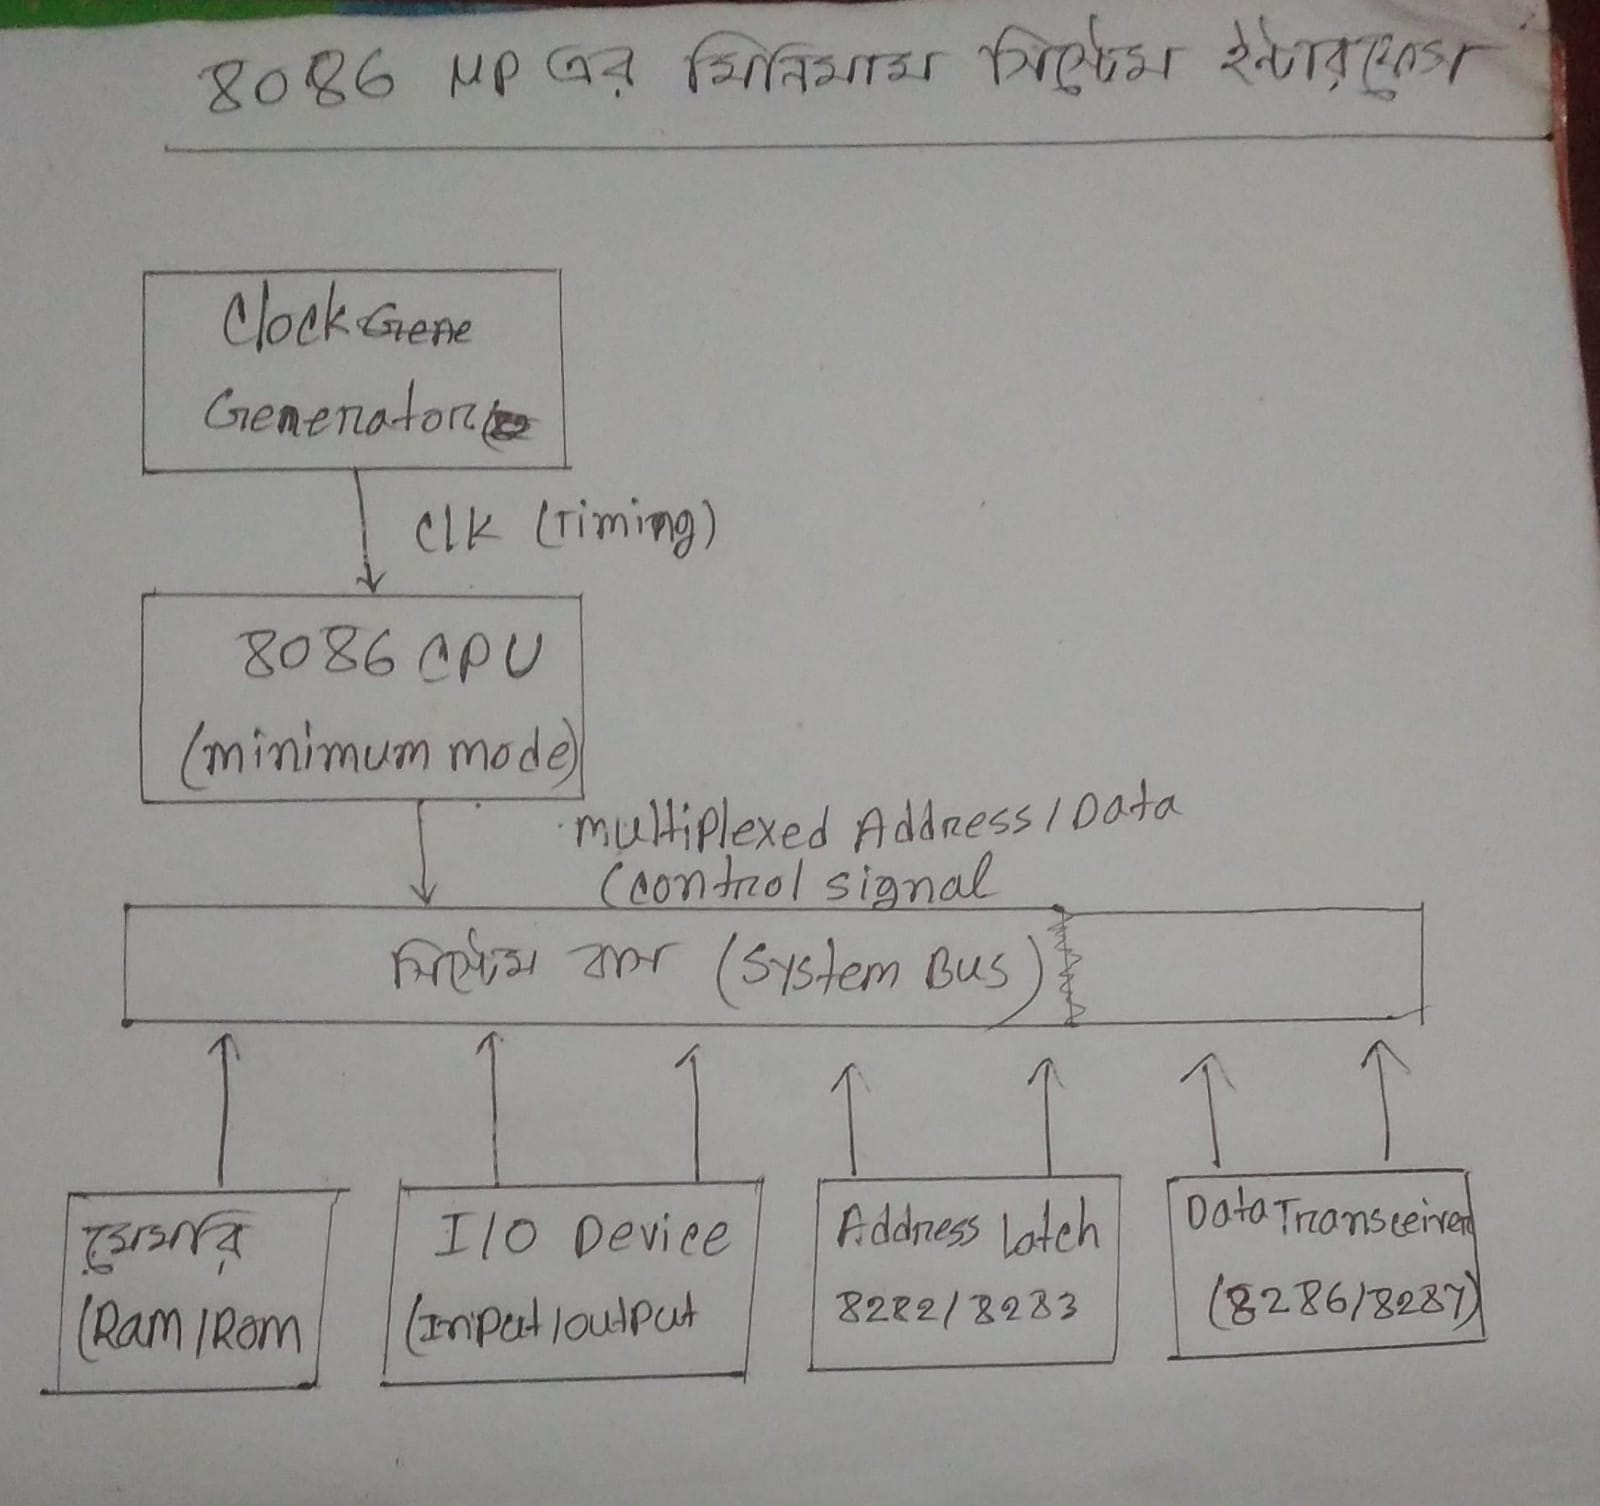 8086 MP এর মিনিমাম সিস্টেম ইন্টারফেস
Clock Gene
Generator
Clk (Timing)
8086 CPU
(minimum mode)
multiplexed Address/Data
(control signal
সিস্টেম বাস (System Bus)
মেমোরি
(Ram/Rom
I/O Device
(Input/output
Address Latch
8282/8283
Data Transceiver
(8286/8287)